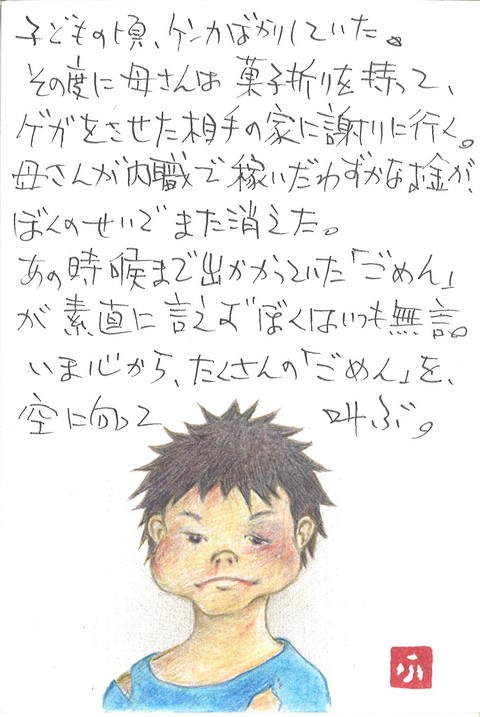 子どもの頃、ケンカばかりしていた。
その度に母さんは菓子折りを持って、
ケガをさせた相手の家に謝りに行く。
母さんが内職で稼いだわずかなお金が、
ぼくのせいでまた消えた。
あの時喉まで出かかっていた「ごめん」
が素直に言えずぼくはいつも無言。
いま心から、たくさんの「ごめん」を、
空に向って 叫ぶ。
ふ